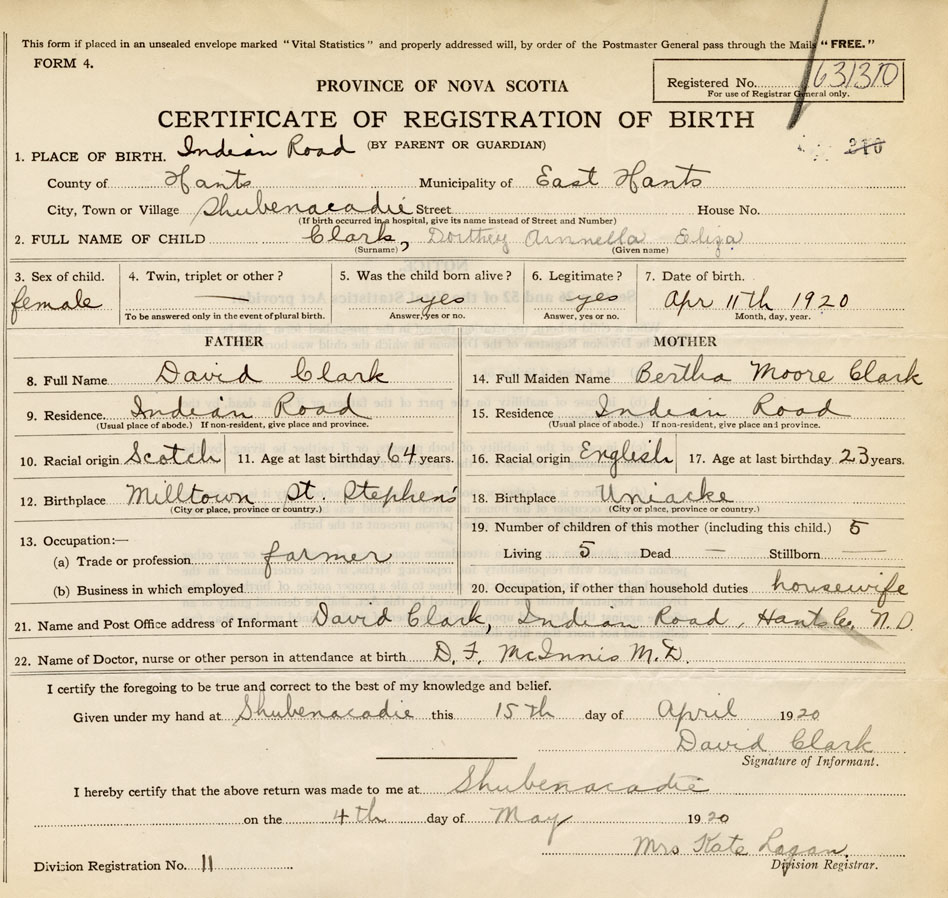 This form if placed in an unsealed envelope marked "Vital Statistics" and properly addressed will, by order of the Postmaster General pass through the Mails "FREE."
FORM 4.
Registered No. 631310
For use of Registrar General only.
PROVINCE OF NOVA SCOTIA
CERTIFICATE OF REGISTRATION OF BIRTH
(BY PARENT OR GUARDIAN)
310
1. PLACE OF BIRTH. Indian Road
County of Hants Municipality of East Hants
City, Town or Village Shubenacadie Street House No.
(If birth occurred in a hospital, give its name instead of Street and Number)
2. FULL NAME OF CHILD Clark, Dorthey Annella Eliza
(Surname) (Given name)
3. Sex of child. 4. Twin, triplet or other? 5. Was the child born alive? 6. Legitimate? 7. Date of birth.
female — yes yes Apr 11th 1920
To be answered only in the event of plural birth. Answer, yes or no. Answer, yes or no. Month, day, year.
FATHER
8. Full Name David Clark
9. Residence. Indian Road
(Usual place of abode.) If non-resident, give place and province.
10. Racial origin Scotch 11. Age at last birthday 64 years.
12. Birthplace Milltown St. Stephens'
(City or place, province or country.)
13. Occupation:—
(a) Trade or profession farmer
(b) Business in which employed
MOTHER
14. Full Maiden Name Bertha Moore Clark
15. Residence Indian Road
(Usual place of abode.) If non-resident, give place and province.
16. Racial origin English 17. Age at last birthday 23 years.
18. Birthplace Uniacke
(City or place, province or country.)
19. Number of children of this mother (including this child.) 5
Living 5 Dead — Stillborn —
20. Occupation, if other than household duties housewife
21. Name and Post Office address of Informant David Clark, Indian Road, Hants Co.
22. Name of Doctor, nurse or other person in attendance at birth D. F. McInnis M.D.
I certify the foregoing to be true and correct to the best of my knowledge and belief.
Given under my hand at Shubenacadie this 15th day of April 1920
David Clark
Signature of Informant.
I hereby certify that the above return was made to me at Shubenacadie
on the 4th day of May 1920
Mrs Kate Logan.
Division Registrar.
Division Registration No. 11